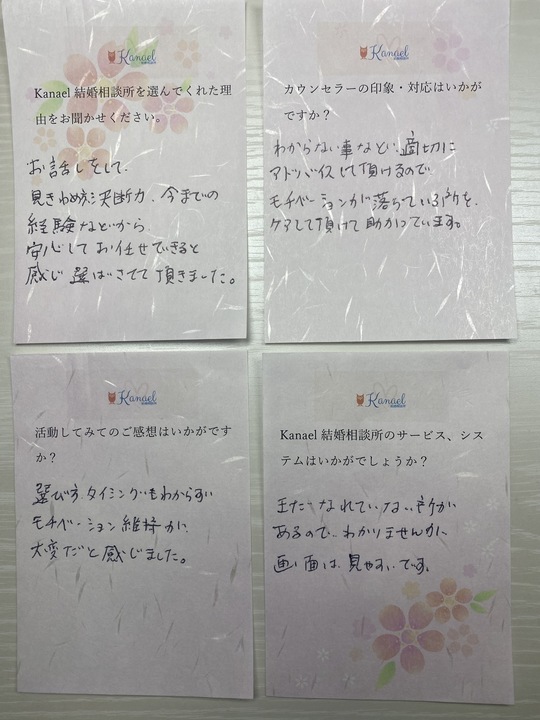 Kanael
Kanael 結婚相談所を選んでくれた理
由をお聞かせください。
お話しをして、
見きわめ方、決断力、今までの
経験などから
安心してお任せできると
感じ 選ばさせて頂きました。
Kanael
カウンセラーの印象・対応はいかが
ですか？
わからない事など、適切に
アドバイスして頂けるので
モチベーションが落ちている所を、
ケアして頂けて助かっています。
Kanael
活動してみてのご感想はいかがです
か？
選び方、タイミングもわからずい
モチベーション維持が、
大変だと感じました。
Kanael
Kanael 結婚相談所のサービス、シス
テムはいかがでしょうか？
まだ なれていない所が
あるので、わかりませんが、
画面は 見やすいです。